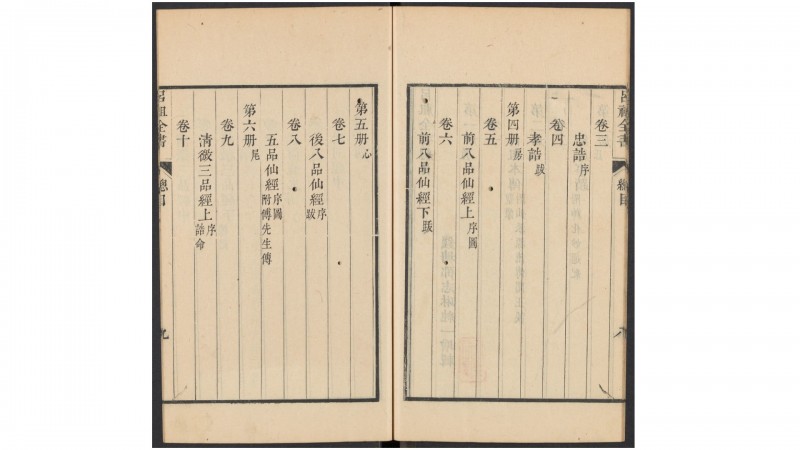 呂祖全書 總目 八
卷三
忠誥序
卷四
孝誥跋
第四册房
卷五
前八品仙經上序圖
卷六
前八品仙經下跋
第五册心
卷七
後八品仙經序跋
卷八
五品仙經序圖附傅先生傳
第六册尾
卷九
清微三品經上序誥命
卷十
呂祖全書 總目 九